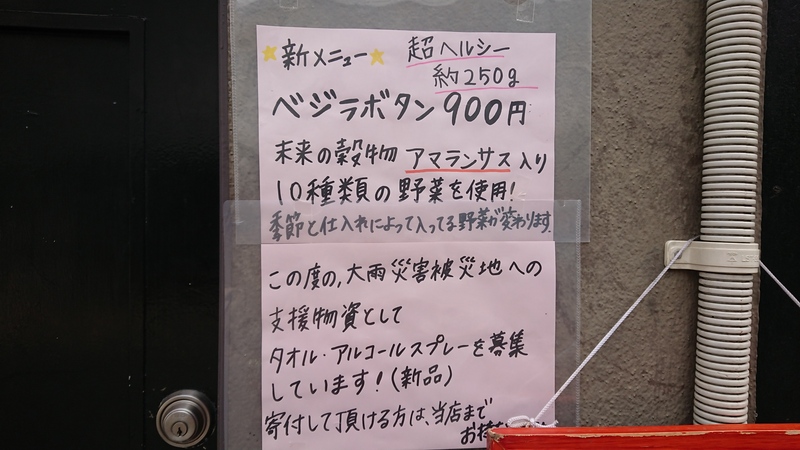 ★新メニュー★ 超ヘルシー
約250g
ベジラボタン 900円
未来の穀物 アマランサス入り
10種類の野菜を使用!
季節と仕入れによって入ってる野菜が変わります。
この度の、大雨災害被災地への
支援物資として
タオル・アルコールスプレーを募集
しています!(新品)
寄付して頂ける方は、当店まで